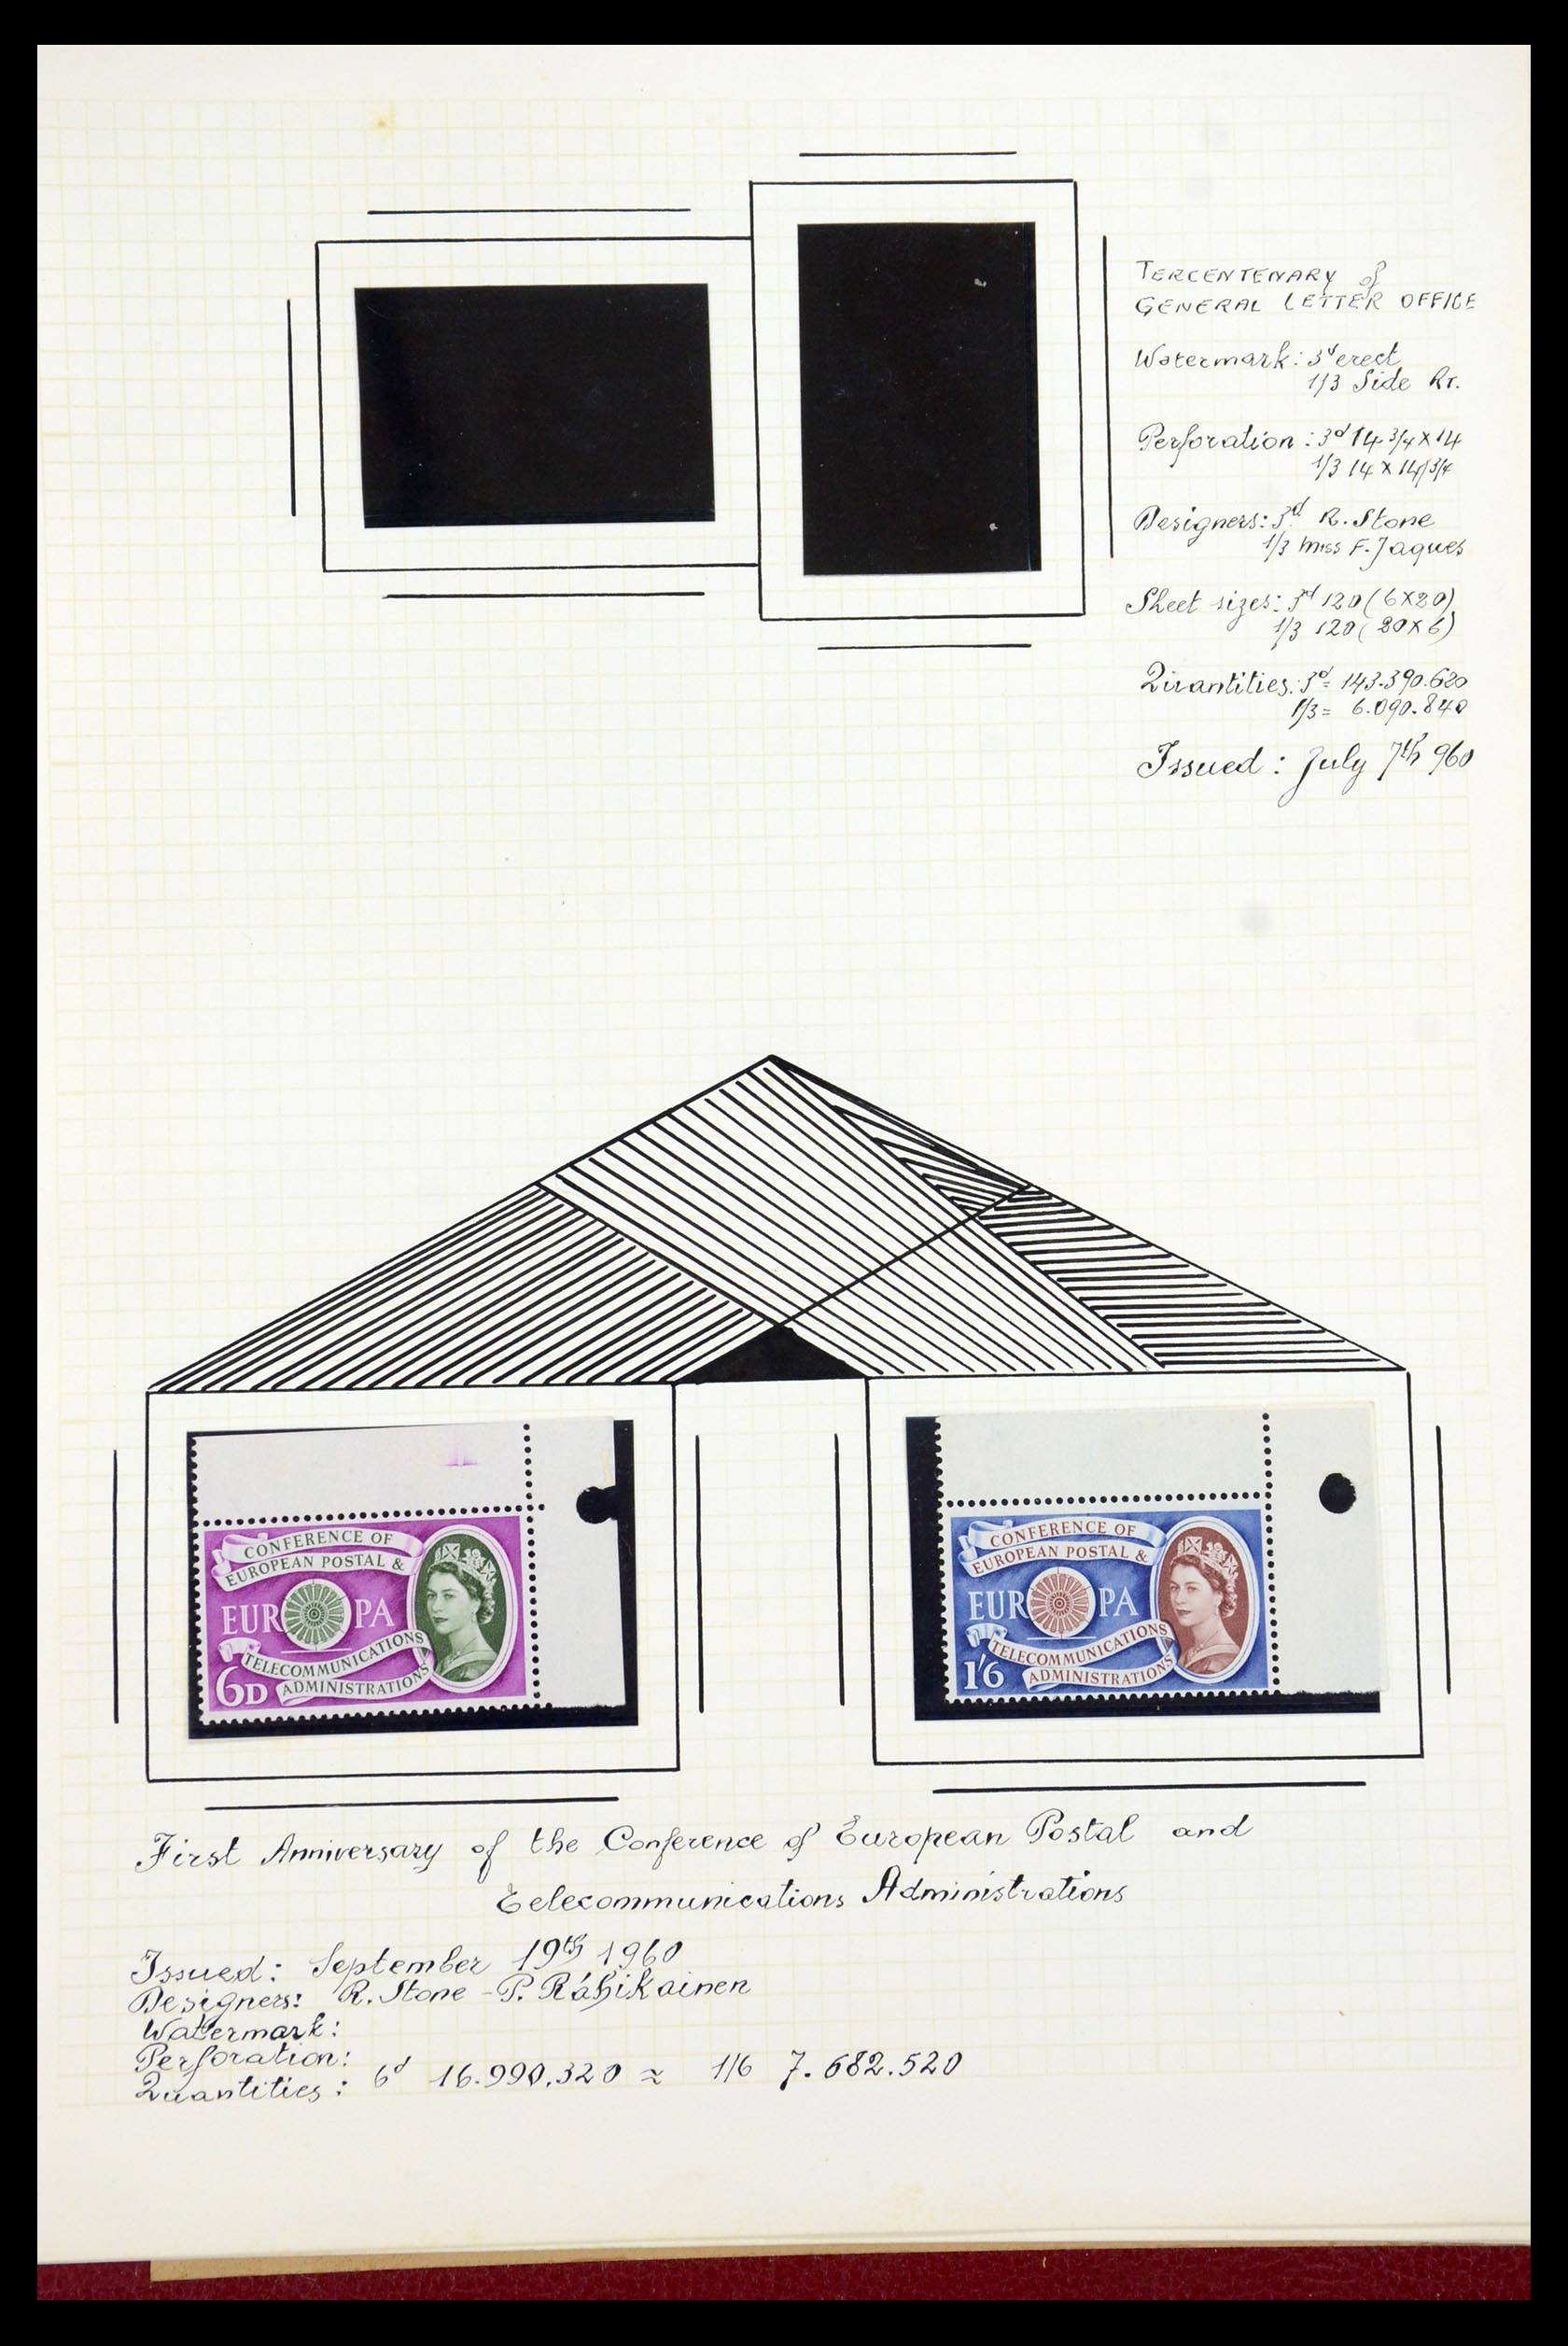 TERCENTENARY of
GENERAL LETTER OFFICE
Watermark: 3d erect
1/3 Side Rt.
Perforation: 3d 14 3/4 X 14
1/3 14 X 14 3/4
Designers: 3d R. Stone
1/3 Miss F. Jaques
Sheet sizes: 3d 120 (6X20)
1/3 120 (20X6)
Quantities: 3d = 143.390.620
1/3 = 6.090.840
Issued: July 7th 960
CONFERENCE OF
EUROPEAN POSTAL &
EUROPA
TELECOMMUNICATIONS
ADMINISTRATIONS
6D
CONFERENCE OF
EUROPEAN POSTAL &
EUROPA
TELECOMMUNICATIONS
ADMINISTRATIONS
1'6
First Anniversary of the Conference of European Postal and
Telecommunications Administrations
Issued: September 19th 1960
Designers: R. Stone - P. Ráhikainen
Watermark:
Perforation:
Quantities: 6d 16.990.320 ≈ 1/6 7.682.520